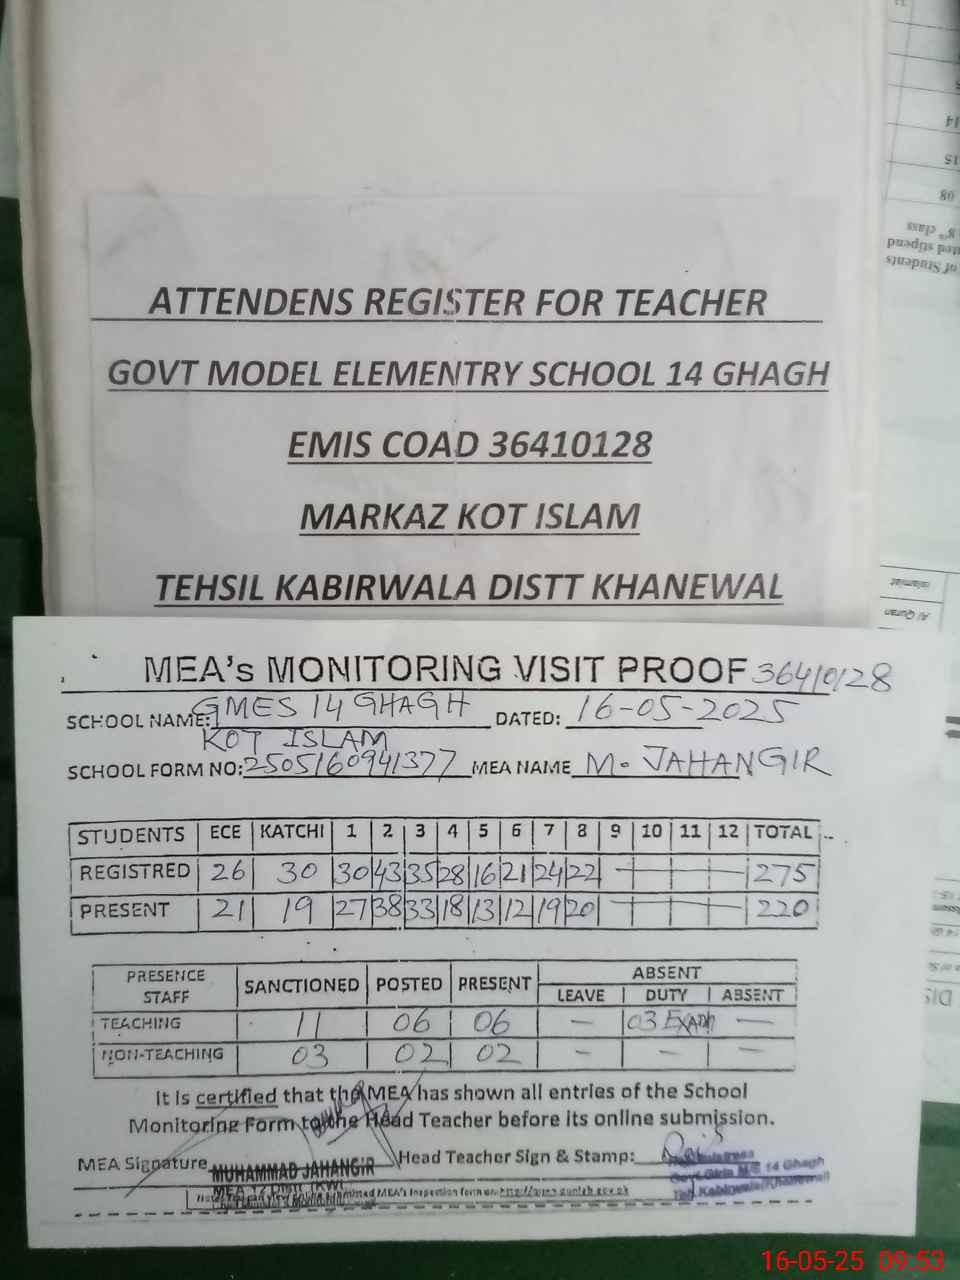 ATTENDENS REGISTER FOR TEACHER
GOVT MODEL ELEMENTRY SCHOOL 14 GHAGH
EMIS COAD 36410128
MARKAZ KOT ISLAM
TEHSIL KABIRWALA DISTT KHANEWAL
MEA's MONITORING VISIT PROOF 36410128
SCHOOL NAME: GMES 14 GHAGH DATED: 16-05-2025
KOT ISLAM
SCHOOL FORM NO: 2505160941377 MEA NAME M. JAHANGIR
STUDENTS ECE KATCHI 1 2 3 4 5 6 7 8 9 10 11 12 TOTAL
REGISTRED 26 30 30 43 35 28 16 21 24 22 275
PRESENT 21 19 27 38 33 18 13 12 19 20 220
PRESENCE STAFF SANCTIONED POSTED PRESENT ABSENT
LEAVE DUTY ABSENT
TEACHING 11 06 06 — 03 —
NON-TEACHING 03 02 02 — — —
It is certified that the MEA has shown all entries of the School
Monitoring Form to the Head Teacher before its online submission.
MEA Signature Head Teacher Sign & Stamp:
MUHAMMAD JAHANGIR
Govt. Girls M/S 14 Ghagh
Teh. Kabirwala (Khanewal)
08
15
14
of Students
stipend
8th class
islamiat
Al Quran
16-05-25 09:53